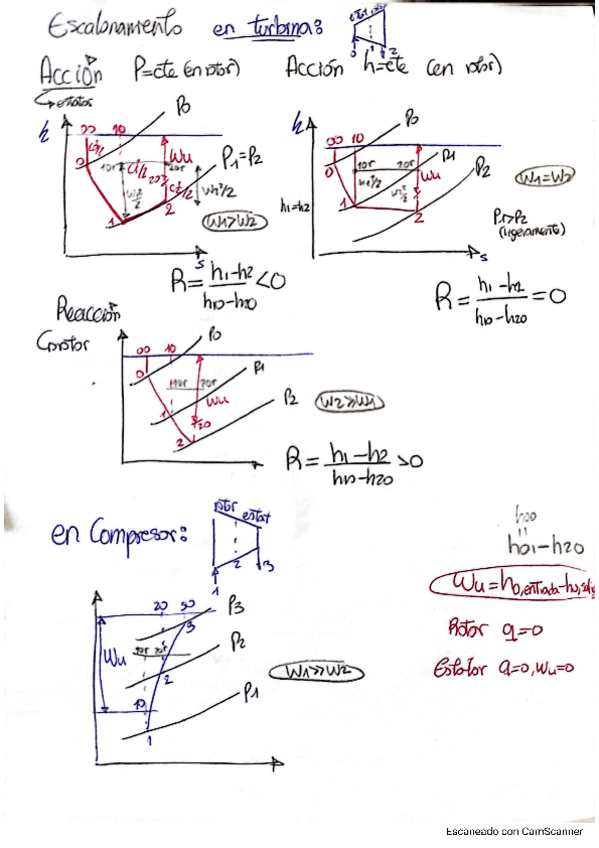 Escalonamiento en turbinas:
estator rotor
0 1 2
Acción P=cte (en rotor)
Acción h=cte (en rotor)
estator
h
00 10
P0
P1=P2
0
C1²/2
10r 20r
Wu
W1>W2
1
2
s
R = h1-h2 / h10-h20 < 0
h
00 10
P0
P1
P2
0
10r 20r
Wu
h1=h2
1
2
W1=W2
P1>P2
(ligeramente)
s
R = h1-h2 / h10-h20 = 0
Reacción
rotor
00 10
P0
P1
P2
0
10r 20r
Wu
1
20
2
W2≫W1
R = h1-h2 / h10-h20 > 0
en Compresor:
rotor estat
1 2 3
h00
=
h01-h20
Wu=h0,entrada-h0,
Rotor q=0
Estator q=0, wu=0
20 30
P3
P2
P1
3
Wu
2
10
1
W1≫W2
Escaneado con CamScanner